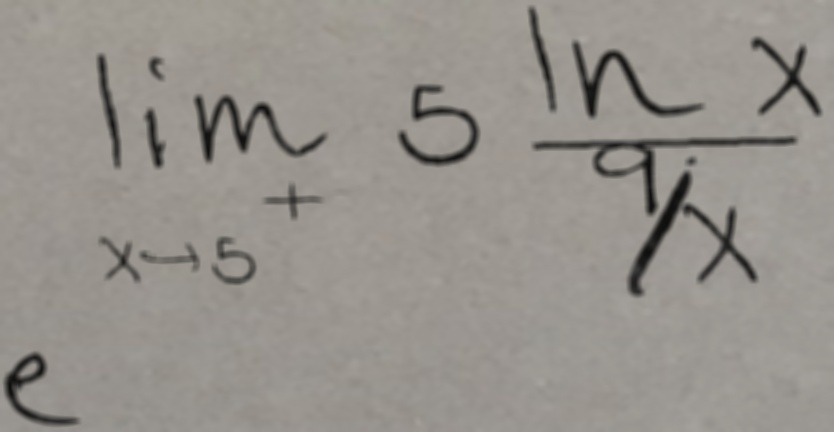 lim x→5⁺ 5 ln x / 9/x
e